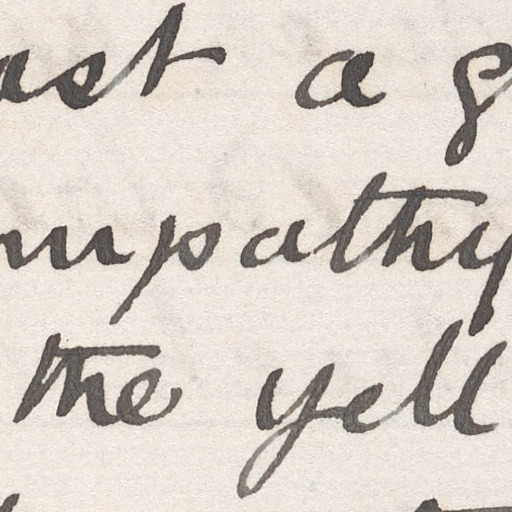 ast a g
mpathy
the yell